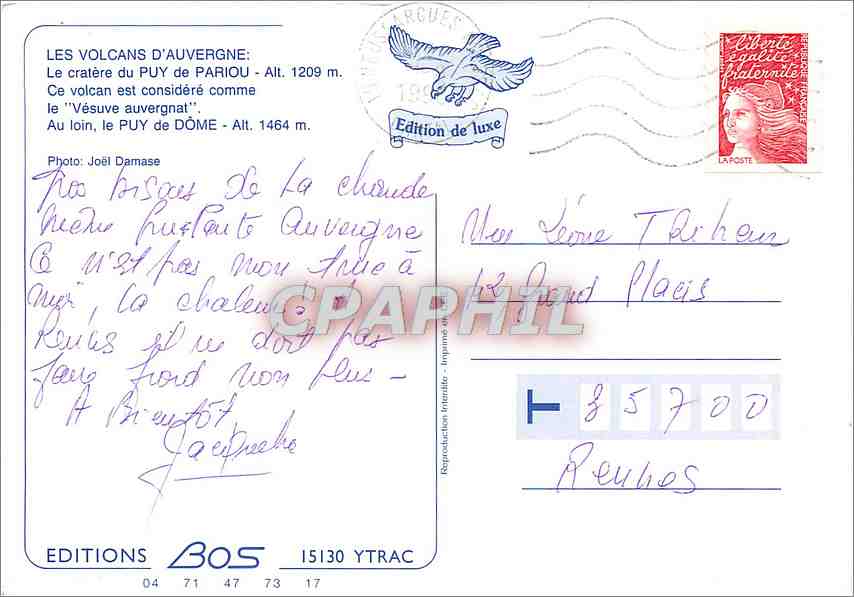 LES VOLCANS D'AUVERGNE:
Le cratère du PUY de PARIOU - Alt. 1209 m.
Ce volcan est considéré comme
le "Vésuve auvergnat".
Au loin, le PUY de DÔME - Alt. 1464 m.
Photo: Joël Damase
Edition de luxe
liberté
égalité
fraternité
RÉPUBLIQUE FRANÇAISE
LA POSTE
bisous de la chaude
Auvergne
Ce n'est pas mon truc à
moi, la chaleur.
Rennes il ne doit pas
faire froid non plus -
A Bientôt,
Jacqueline
Léone
42 Grand Placis
T 35700
Rennes
CPAPHIL
Reproduction Interdite - Imprimé en
EDITIONS BOS 15130 YTRAC
04 71 47 73 17